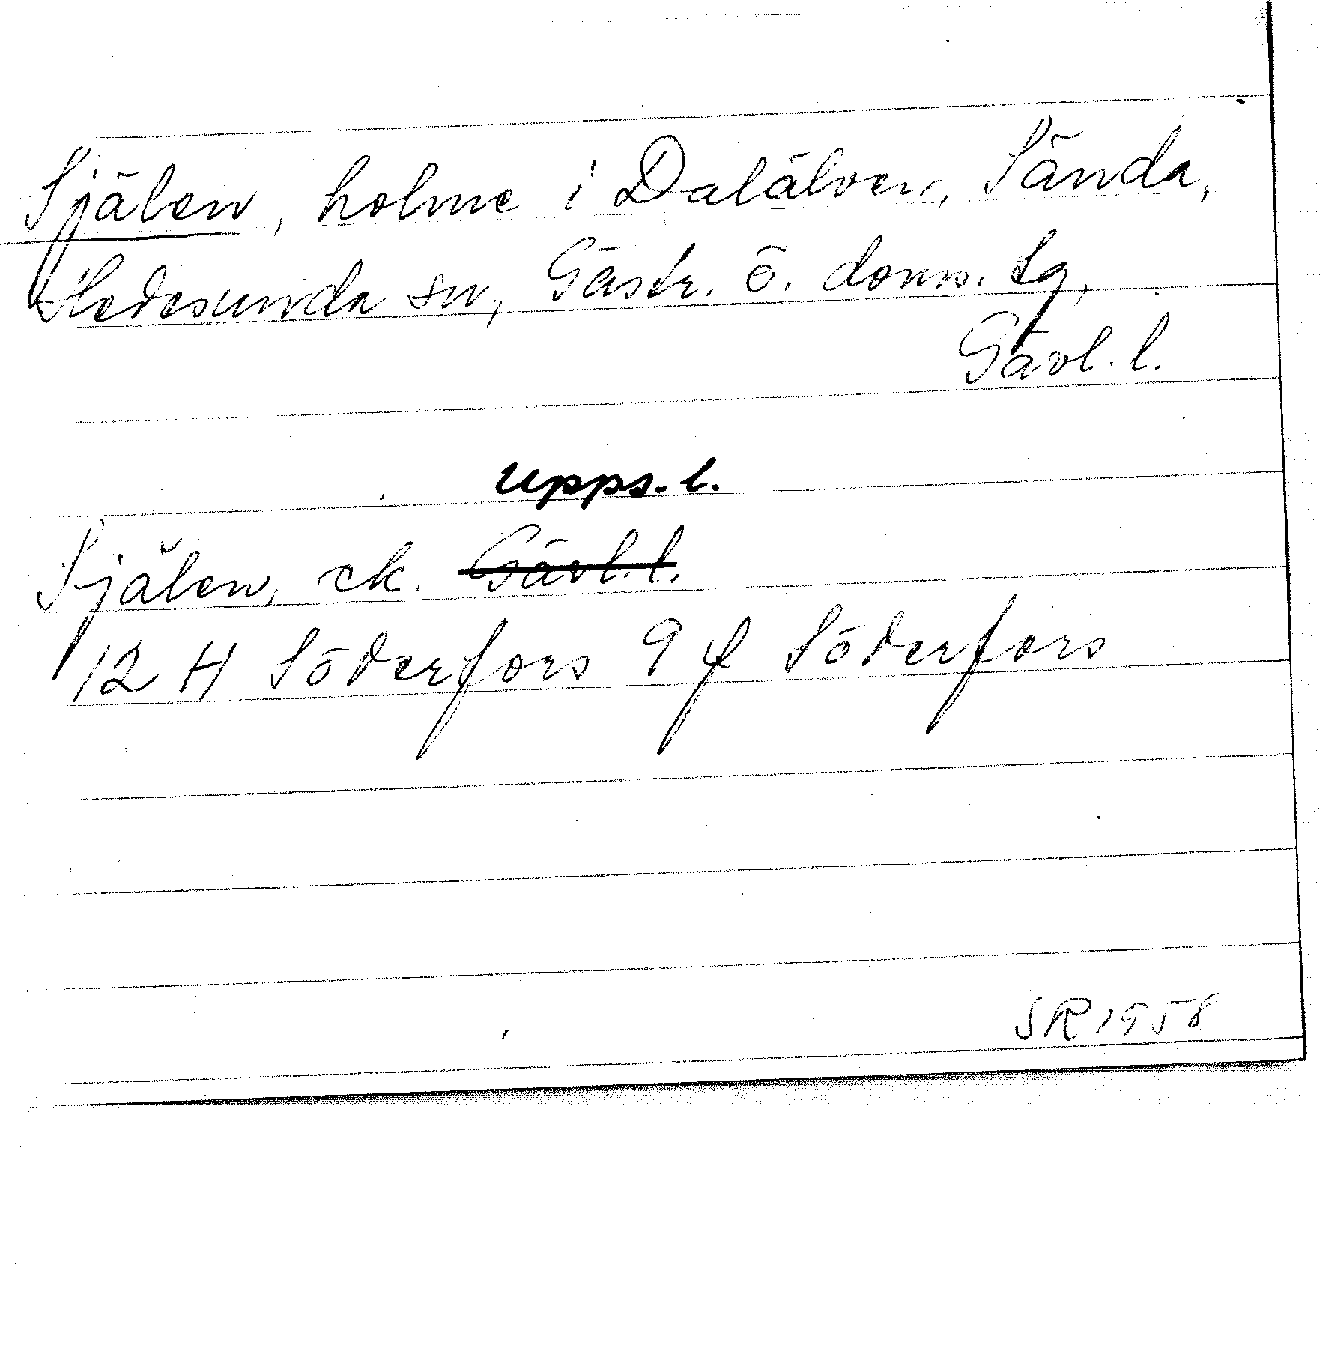 Själen, holme i Dalälven, Sända,
Hedesunda sn, Gästr. ö. doms. tg,
Gävl. l.
Upps. l.
Själen, ek. Gävl. l.
12 H Söderfors 9 f Söderfors
SR 1958